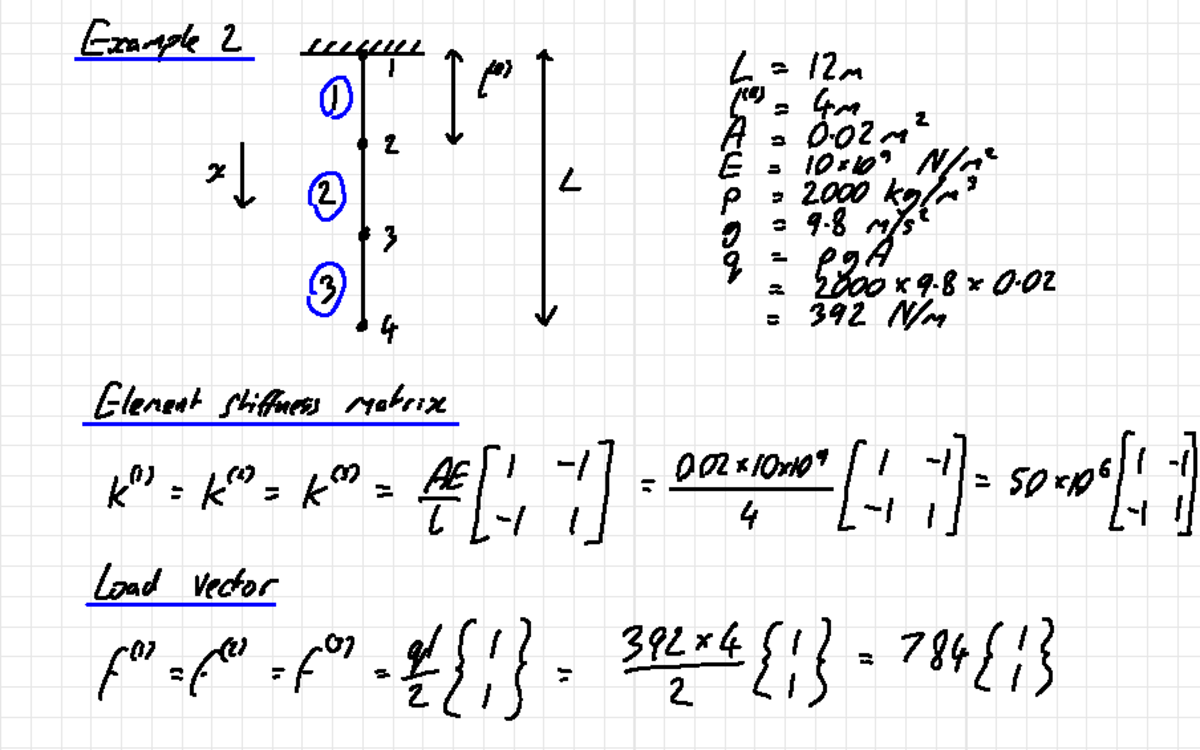 Example 2
1
l⁽ᵉ⁾
①
2
x
②
L
3
③
4
L = 12m
l⁽ᵉ⁾ = 4m
A = 0.02 m²
E = 10×10⁹ N/m²
ρ = 2000 kg/m³
g = 9.8 m/s²
q = ρgA
= 2000 × 9.8 × 0.02
= 392 N/m
Element stiffness matrix
k⁽¹⁾ = k⁽²⁾ = k⁽³⁾ = AE/L [1 -1; -1 1] = 0.02×10×10⁹/4 [1 -1; -1 1] = 50×10⁶ [1 -1; -1 1]
Load vector
f⁽¹⁾ = f⁽²⁾ = f⁽³⁾ = ql/2 {1; 1} = 392×4/2 {1; 1} = 784 {1; 1}